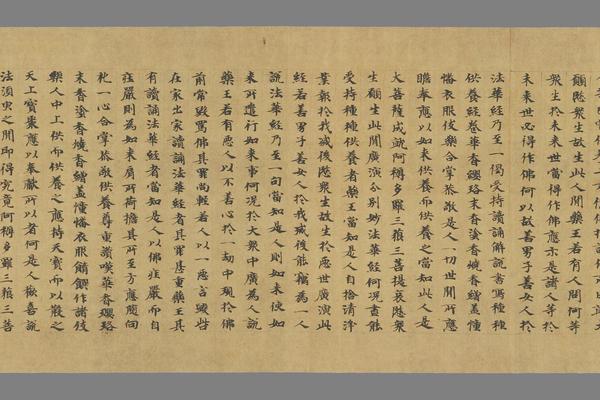 願愍衆生故生此人間藥王若有人問何等
衆生於未來世當得作佛應示是諸人等於
未來世必得作佛何以故若善男子善女人於
法華經乃至一偈受持讀誦解說書寫種種
供養經卷華香瓔珞末香塗香燒香繒蓋幢
幡衣服伎樂合掌恭敬是人一切世間所應
瞻奉應以如來供養而供養之當知此人是
大菩薩成就阿耨多羅三藐三菩提哀愍衆
生願生此間廣演分別妙法華經何況盡能
受持種種供養者藥王當知是人自捨清淨
業報於我滅後愍衆生故生於惡世廣演此
經若善男子善女人於我滅後能竊為一人
說法華經乃至一句當知是人則如來使如
來所遣行如來事何況於大衆中廣為人說
藥王若有惡人以不善心於一劫中現於佛
前常毀罵佛其罪尚輕若人以一惡言毀呰
在家出家讀誦法華經者其罪甚重藥王其
有讀誦法華經者當知是人以佛莊嚴而自
莊嚴則為如來肩所荷擔其所至方應隨向
礼一心合掌恭敬供養尊重讚歎華香瓔珞
末香塗香燒香繒蓋幢幡衣服餚饌作諸伎
樂人中上供而供養之應持天寶而以散之
天上寶聚應以奉獻所以者何是人歡喜說
法須臾之聞即得究竟阿耨多羅三藐三菩